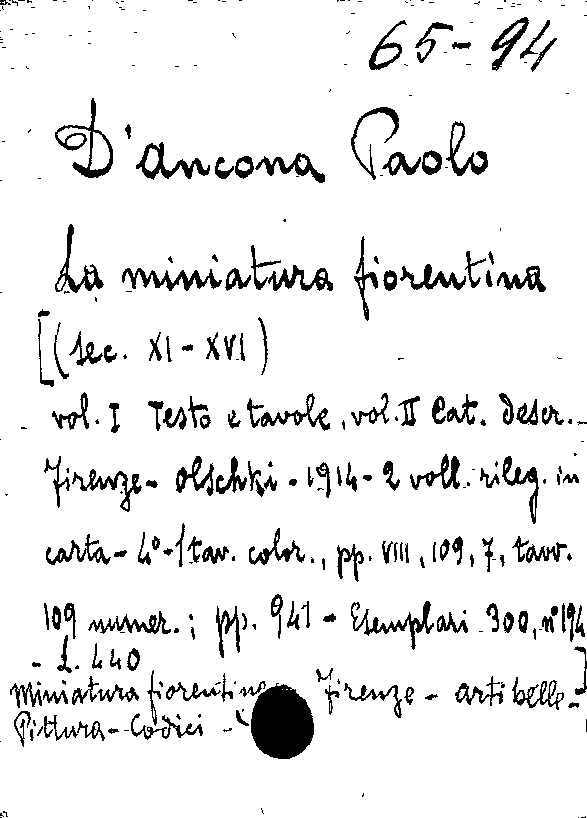 65-94
D'ancona Paolo
La miniatura fiorentina
[(sec. XI - XVI)
vol. I Testo e tavole, vol. II Cat. descr. -
Firenze - Olschki - 1914 - 2 voll. rileg. in
carta - 4° - 1 tav. color., pp. VIII, 109, 7, tavv.
109 numer.; pp. 941 - Esemplari 300, n° 194
- L. 440 ]
Miniatura fiorentina - Firenze - arti belle -
Pittura - Codici -